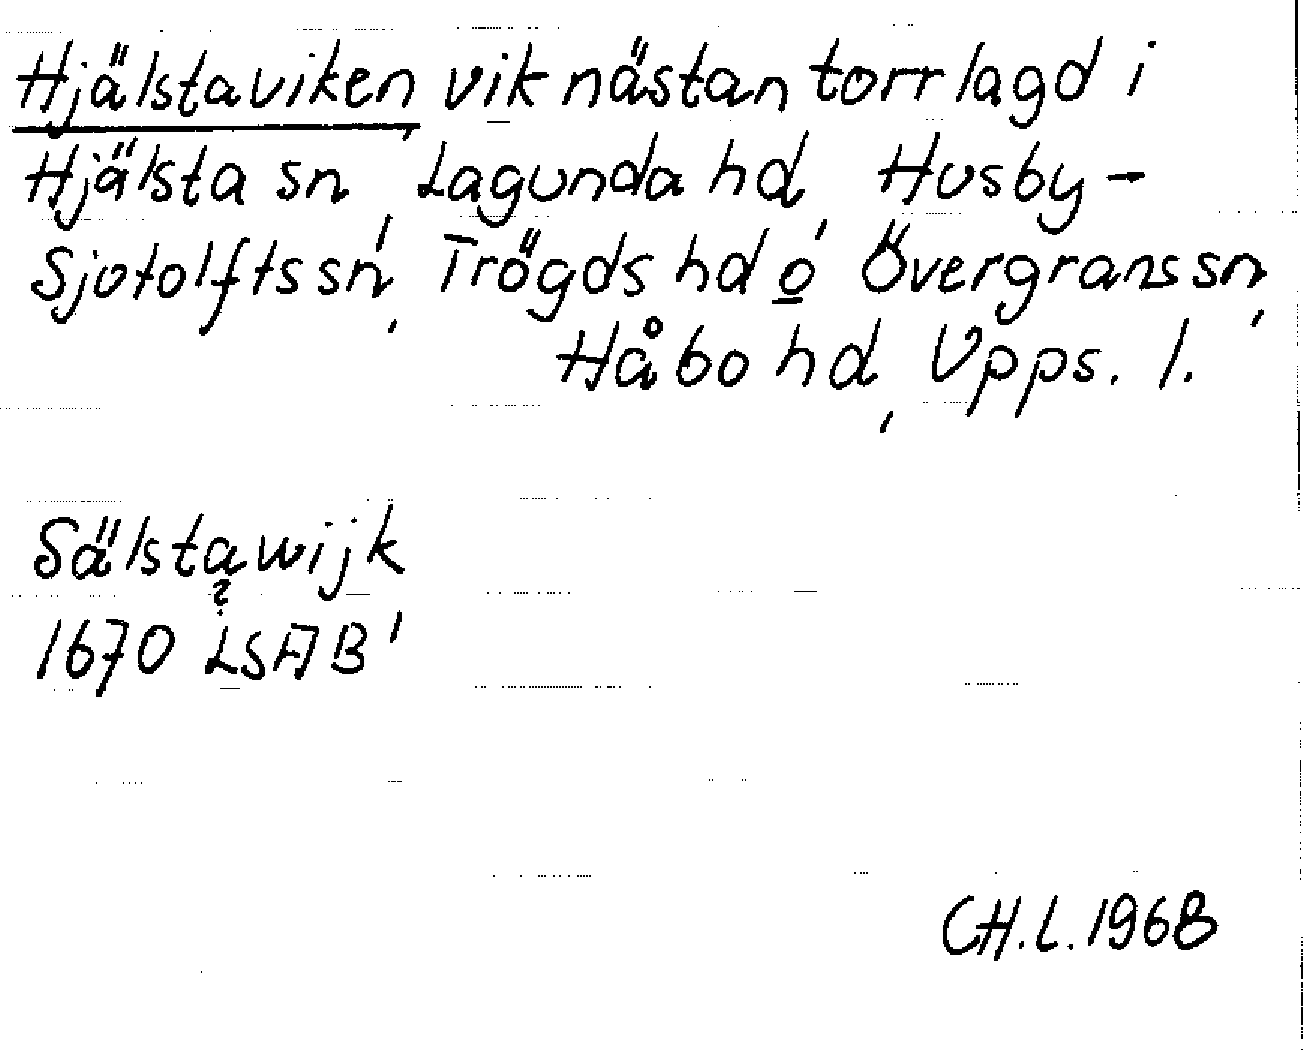 Hjälstaviken, vik nästan torrlagd i
Hjälsta sn, Lagunda hd, Husby-
Sjotolfts sn, Trögds hd o Övergrans sn,
Håbo hd, Upps. l.
Sälstawijk
?
1670 LSA B1
CH.L. 1968